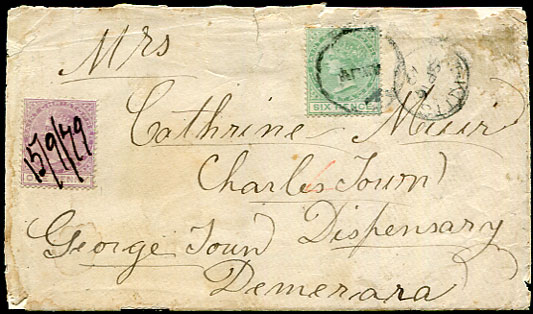 Mrs
SIX PENCE
Cathrine Muir
15/9/79
Charles Town
Dispensary
George Town
Demerara